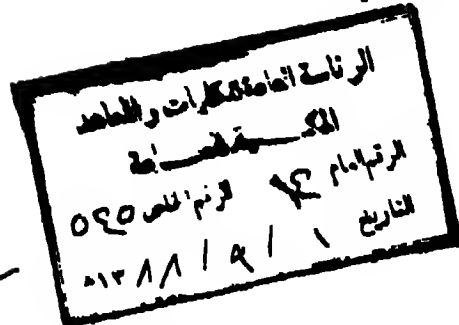 الرئاسة العامة للكليات والمعاهد
المكتبة العامة
الرقم العام ٩٤ الرقم الخاص ٥٤٥
التاريخ ١ / ٩ / ١٣٨٨ هـ